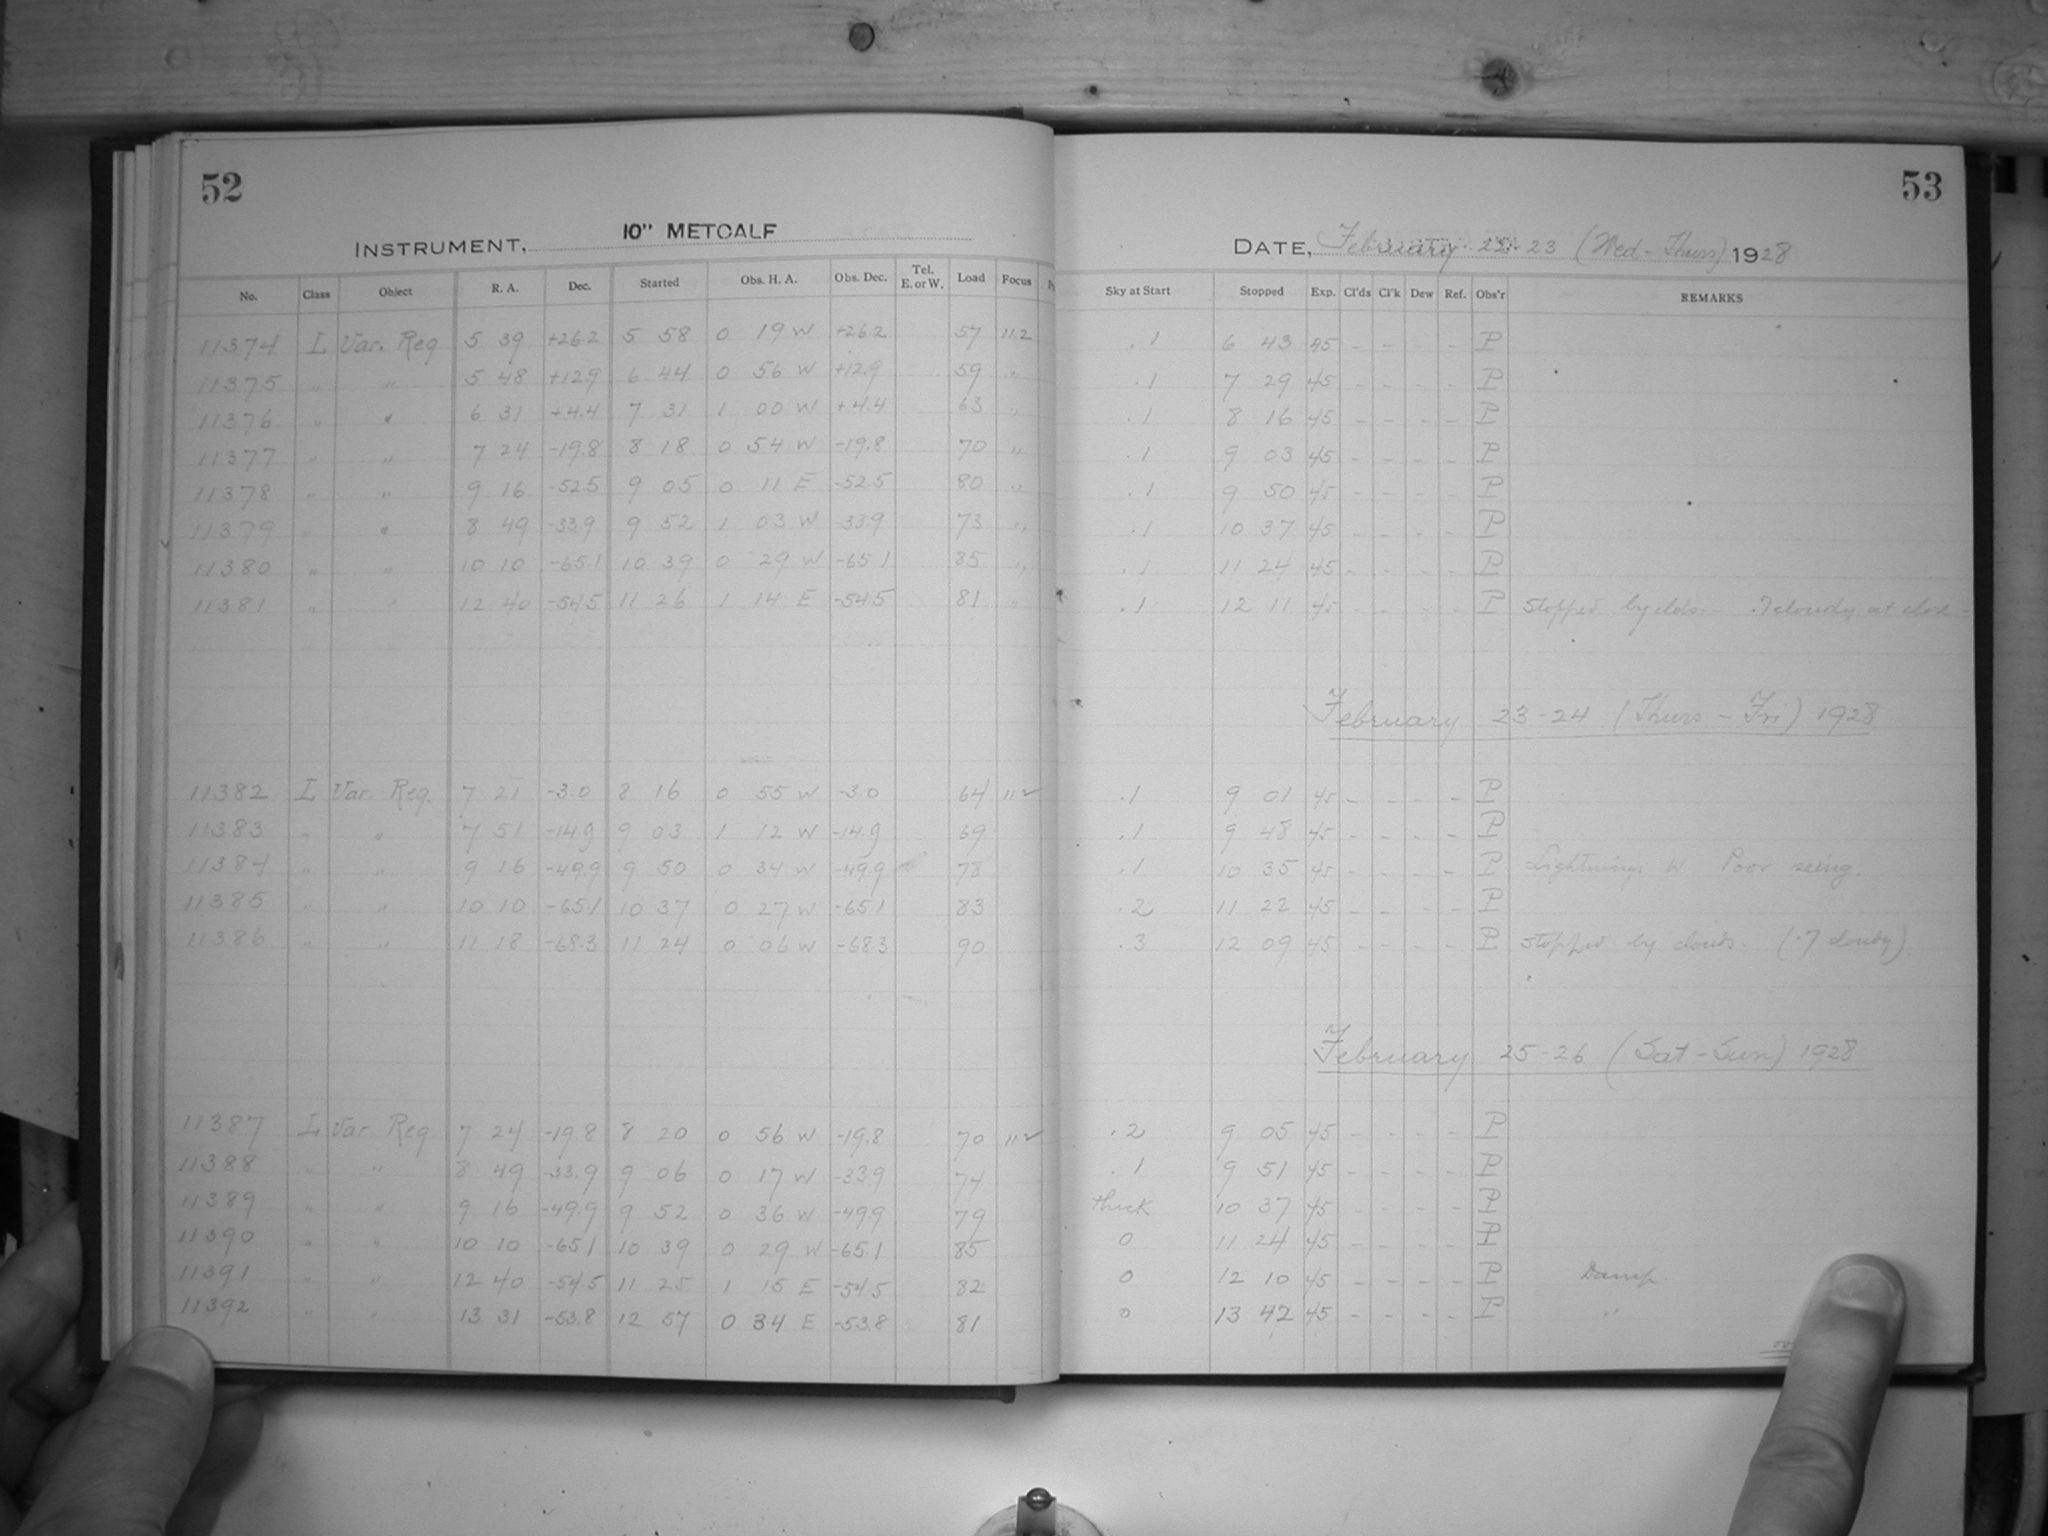 52
INSTRUMENT, 10" METCALF
No. Class Object R. A. Dec. Started Obs. H. A. Obs. Dec. Tel. E. or W. Load Focus
11374 L Var. Reg 5 39 +26.2 5 58 0 19 W +26.2 57 11.2
11375 " " 5 48 +12.9 6 44 0 56 W +12.9 59 "
11376 " " 6 31 +4.4 7 31 1 00 W +4.4 63 "
11377 " " 7 24 -19.8 8 18 0 54 W -19.8 70 "
11378 " " 9 16 -52.5 9 05 0 11 E -52.5 80 "
11379 " " 8 49 -33.9 9 52 1 03 W -33.9 73 "
11380 " " 10 10 -65.1 10 39 0 29 W -65.1 85 "
11381 " " 12 40 -54.5 11 26 1 14 E -54.5 81 "
11382 L Var. Reg. 7 21 -3.0 8 16 0 55 W -3.0 64
11383 " " 7 51 -14.9 9 03 1 12 W -14.9 69
11384 " " 9 16 -49.9 9 50 0 34 W -49.9 78
11385 " " 10 10 -65.1 10 37 0 27 W -65.1 83
11386 " " 11 18 -68.3 11 24 0 06 W -68.3 90
11387 L Var Reg. 7 24 -19.8 8 20 0 56 W -19.8 70
11388 " " 8 49 -33.9 9 06 0 17 W -33.9 74
11389 " " 9 16 -49.9 9 52 0 36 W -49.9 79
11390 " " 10 10 -65.1 10 39 0 29 W -65.1 85
11391 " " 12 40 -54.5 11 25 1 15 E -54.5 82
11392 " " 13 31 -53.8 12 57 0 34 E -53.8 81
53
DATE, February 22-23 (Wed-Thurs) 1928
Sky at Start Stopped Exp. Cl'ds Cl'k Dew Ref. Obs'r REMARKS
.1 6 43 45 - - - - P
.1 7 29 45 - - - - P
.1 8 16 45 - - - - P
.1 9 03 45 - - - - P
.1 9 50 45 - - - - P
.1 10 37 45 - - - - P
.1 11 24 45 - - - - P
.1 12 11 45 - - - - P Stopped by clds. .7 cloudy at close
February 23-24 (Thurs - Fri) 1928
.1 9 01 45 - - - - P
.1 9 48 45 - - - - P
.1 10 35 45 - - - - P Lightning W Poor seeing.
.2 11 22 45 - - - - P
.3 12 09 45 - - - - P Stopped by clouds. (.7 cloudy)
February 25-26 (Sat-Sun) 1928
.2 9 05 45 - - - - P
.1 9 51 45 - - - - P
thick 10 37 45 - - - - P
0 11 24 45 - - - - P
0 12 10 45 - - - - P Damp
0 13 42 45 - - - - P "